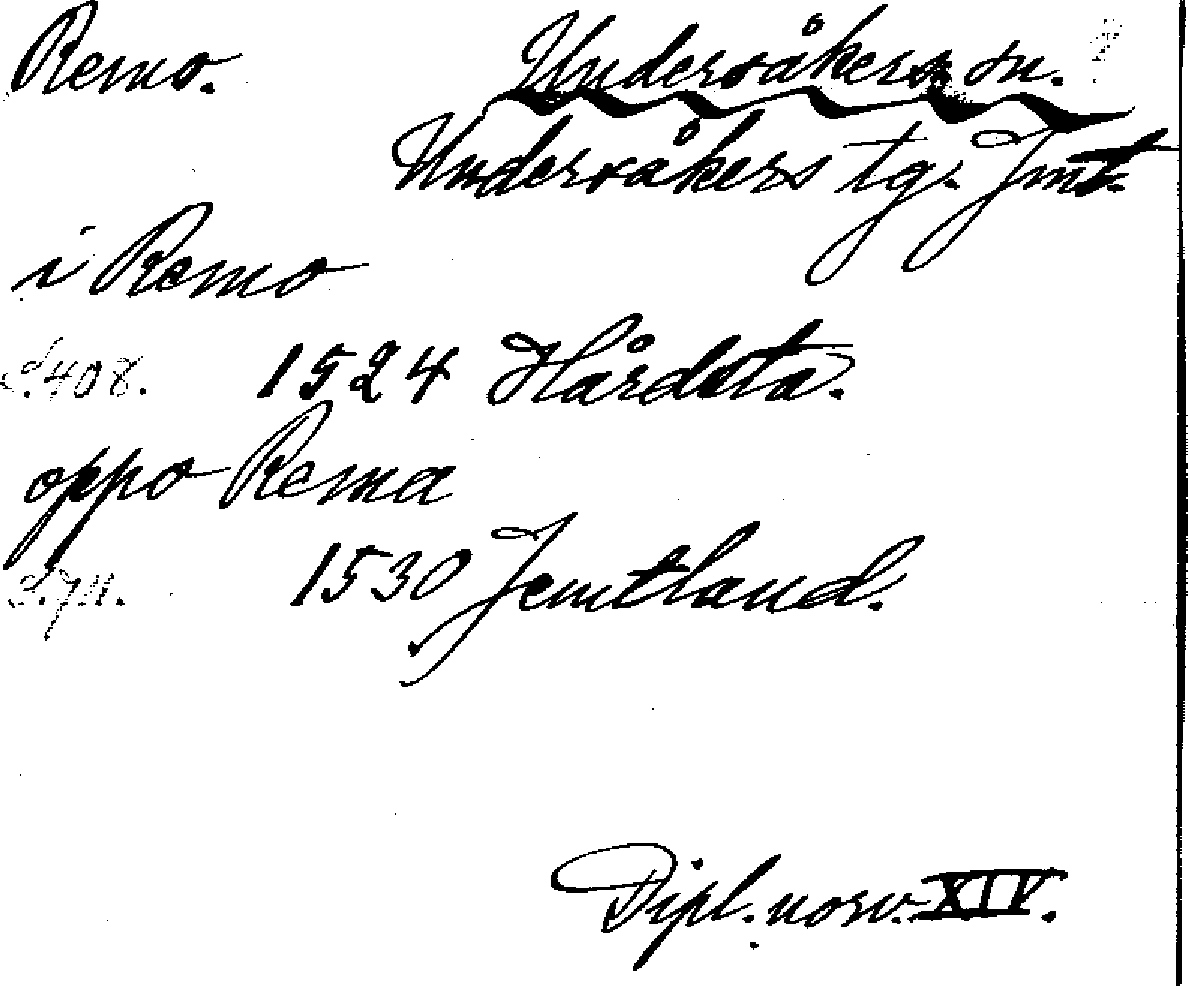 Remo. Undersåkers sn.
Undersåkers tg. Jmt.
i Remo
S. 408. 1524 Hårdsta.
oppo Rema
S. 711. 1530 Jemtland.
Dipl. norv. XIV.